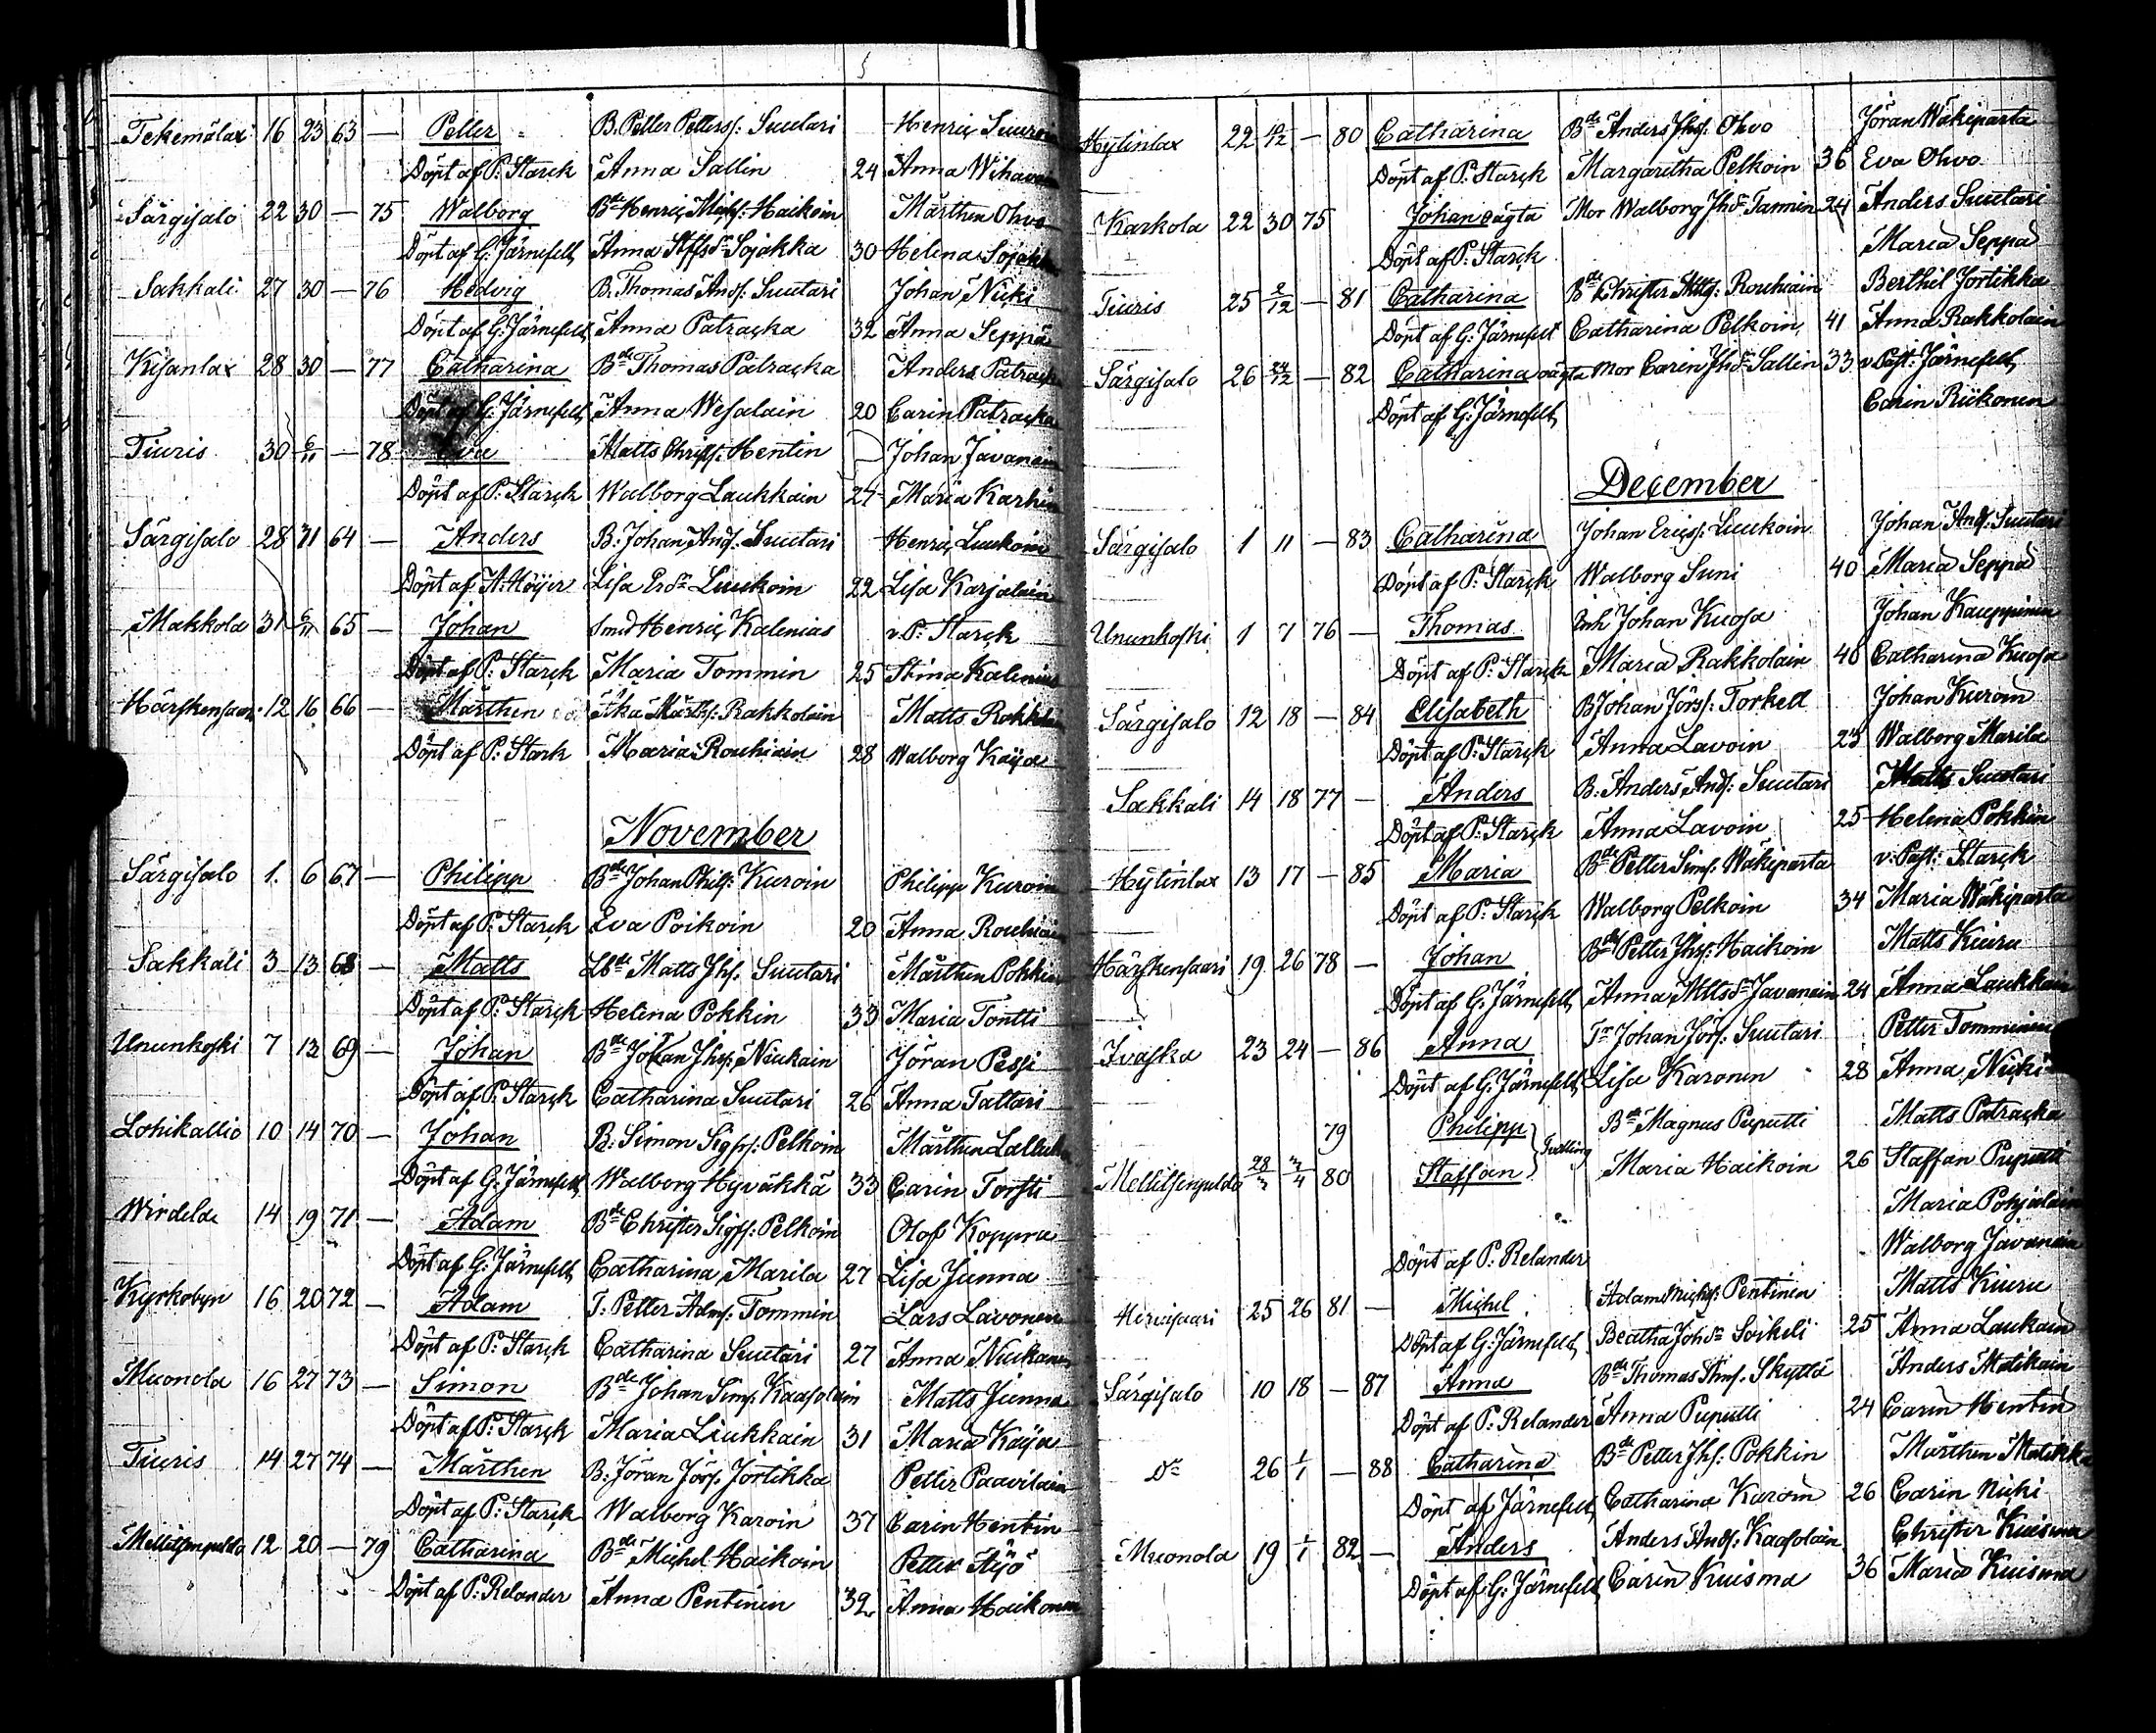 Tekemälax 16 23 63 — Petter B. Petter Petterss: Suutari Henric Suuroin
Döpt af P: Starck Anna Sallin 24 Anna Wihavain
Särgisalo 22 30 — 75 Walborg Bde Henric Michs: Haikoin Mårthen Ohvo
Döpt af G: Järnefelt Anna Stffsdr Sojakka 30 Helena Sojakka
Sakkali 27 30 — 76 Hedvig B. Thomas Ands: Suutari Johan Nicki
Döpt af G: Järnefelt Anna Patracka 32 Anna Seppä
Kesanlax 28 30 — 77 Catharina Bde Thomas Patracka Anders Patracka
Döpt af G: Järnefelt Anna Wesalain 20 Carin Patracka
Tiuris 30 6/11 — 78 Eva Matts Chrisss: Hentin Johan Javanain
Döpt af P: Starck Walborg Laukkain 27 Maria Karhin
Särgisalo 28 31 64 — Anders B: Johan Ands: Suutari Henric Luukoin
Döpt af A: Höijer Lisa Ersdr Luukoin 22 Lisa Karjalain
Makkola 31 6/11 65 — Johan Smed Henric Kalenius v. P: Starck
Döpt af P: Starck Maria Tommin 25 Stina Kalenius
Härskensaari 12 16 66 — Mårthen Mårths: Rakkolain Matts Rakkolain
Döpt af P: Stark Maria Rouhiain 28 Walborg Kaija
November
Särgisalo 1. 6 67 — Philipp Bde Johan Phils: Kuroin Philipp Kuroin
Döpt af P: Starck Eva Poikoin 20 Anna Rouhiain
Sakkali 3 13 68 — Matts Lbde Matts Jhs: Suutari Mårthen Pokkin
Döpt af P: Starck Helena Pokkin 33 Maria Tontti
Ununkoski 7 13 69 — Johan Bde Johan Jhs: Niukain Jöran Pessi
Döpt af P: Starck Catharina Suutari 26 Anna Tattari
Lohikallio 10 14 70 — Johan B: Simon Sigfs: Pelkoin Mårthen Lallukka
Döpt af G: Järnefelt Walborg Hyväkkä 33 Carin Torsti
Wirdela 14 19 71 — Adam Bde Christer Sigfs: Pelkoin Olof Koppra
Döpt af G: Järnefelt Catharina Marila 27 Lisa Junna
Kyrkobyn 16 20 72 — Adam T. Petter Adms: Tommin Lars Lavonen
Döpt af P: Starck Catharina Suutari 27 Anna Niukanen
Muonola 16 27 73 — Simon Bde Johan Sims: Kaasolain Matts Junna
Döpt af P: Starck Maria Liukkain 31 Maria Kaija
Tiuris 14 27 74 — Mårthen B: Jöran Jörs: Jortikka Petter Paavilain
Döpt af P: Starck Walborg Karoin 37 Carin Hentin
Mellitsenpuldo 12 20 — 79 Catharina Bde Michel Haikoin Petter Äijö
Döpt af P: Relander Anna Pentinen 32 Anna Haikonen
Hytinlax 22 6/12 — 80 Catharina Bde Anders Jhs: Ohvo Jöran Wäkiparta
Döpt af P: Starck Margaretha Pelkoin 36 Eva Ohvo
Karkola 22 30 75 Johan oägta Mor Walborg Jhdr Tannin 24 Anders Suutari
Döpt af P: Starck Maria Seppä
Tiuris 25 2/12 — 81 Catharina Bde Christer Mtts: Rouhiain Berthil Jortikka
Döpt af G: Järnefelt Catharina Pelkoin 41 Anna Rakkolain
Särgisalo 26 24/12 — 82 Catharina oägta Mor Carin Jhdr Sallin 33 v Past: Järnefelt
Döpt af G: Järnefelt Carin Riikonen
December
Särgisalo 1 11 — 83 Catharina Johan Ericss: Luukoin Johan Ands: Suutari
Döpt af P: Starck Walborg Suni 40 Maria Seppä
Ununkoski 1 7 76 — Thomas Johan Kuosa Johan Kauppinen
Döpt af P: Starck Maria Rakkolain 40 Catharina Kuosa
Särgisalo 12 18 — 84 Elisabeth B Johan Jörs: Torkell Johan Kuroin
Döpt af P: Starck Anna Lavoin 23 Walborg Marila
Sakkali 14 18 77 — Anders B: Anders Ands: Suutari Matts Suutari
Döpt af P: Starck Anna Lavoin 25 Helena Pokkin
Hytinlax 13 17 — 85 Maria Bde Petter Sims: Wäkiparta v: Past: Starck
Döpt af P: Starck Walborg Pelkoin 34 Maria Wäkiparta
Härskensaari 19 26 78 — Johan Bde Petter Jhs: Haikoin Matts Kiuru
Döpt af G: Järnefelt Anna Mttsdr Javanain 24 Anna Laukkain
Ivaska 23 24 — 86 Anna Tr Johan Jörs: Suutari Petter Tomminen
Döpt af G: Järnefelt Lisa Karonen 28 Anna Nicki
79 Philipp Bde Magnus Puputti Matts Patracka
Mellitsenpuldo 28/3 3/4 80 Staffan Tvilling Maria Haikoin 26 Staffan Puputti
Maria Pohjalain
Döpt af P: Relander Walborg Javanain
Hirvisaari 25 26 81 — Michel Adam Michs: Pentinen Matts Kiuru
Döpt af G: Järnefelt Beatha Johdr Soikeli 25 Anna Laukain
Särgisalo 10 18 — 87 Anna Bde Thomas Thms. Skyttä Anders Matikain
Döpt af P: Relander Anna Puputti 24 Carin Hentin
Do 26 1/1 — 88 Catharina Bde Petter Jhs: Pokkin Mårthen Matikka
Döpt af Järnefelt Catharina Kuroin 26 Carin Nicki
Muonola 19 1/1 82 — Anders Anders Ands: Kaasolain Christer Kuisma
Döpt af G: Järnefelt Carin Kuisma 36 Maria Kuisma